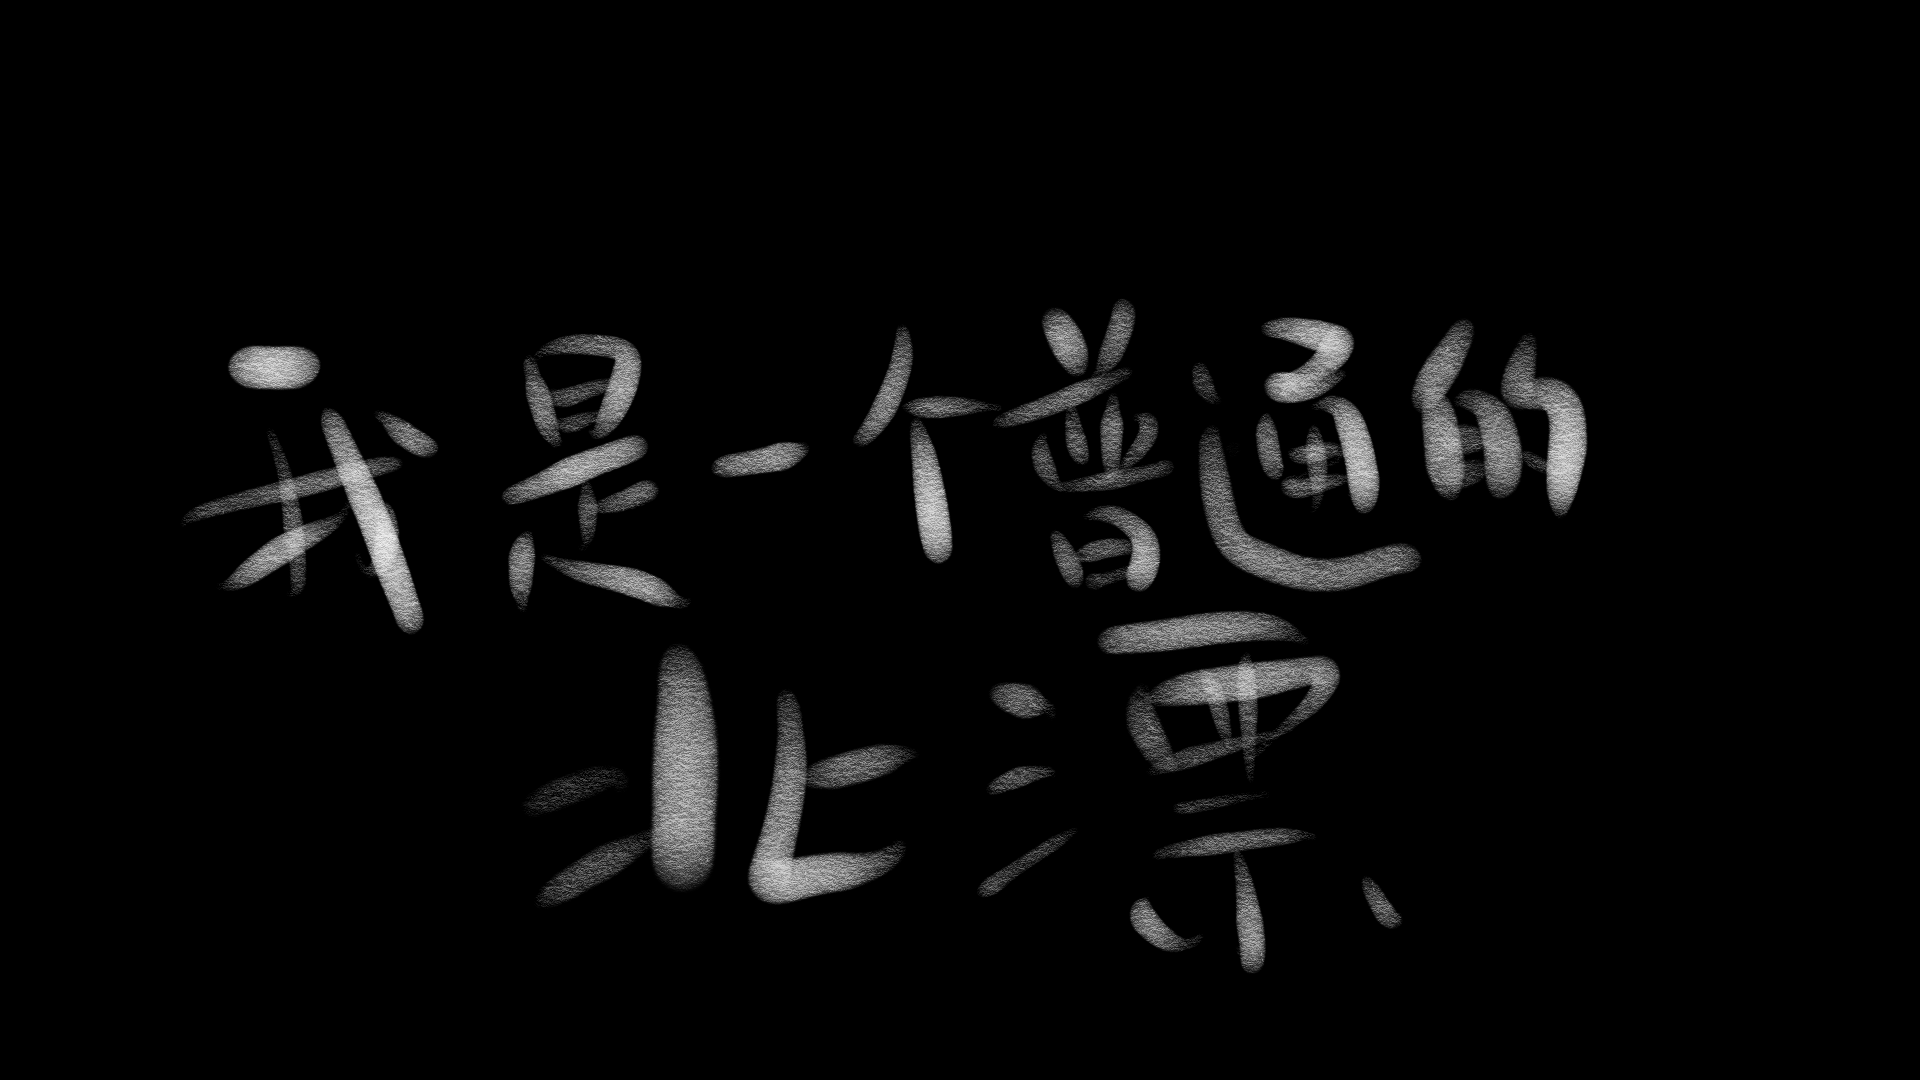 我是一个普通的
北漂